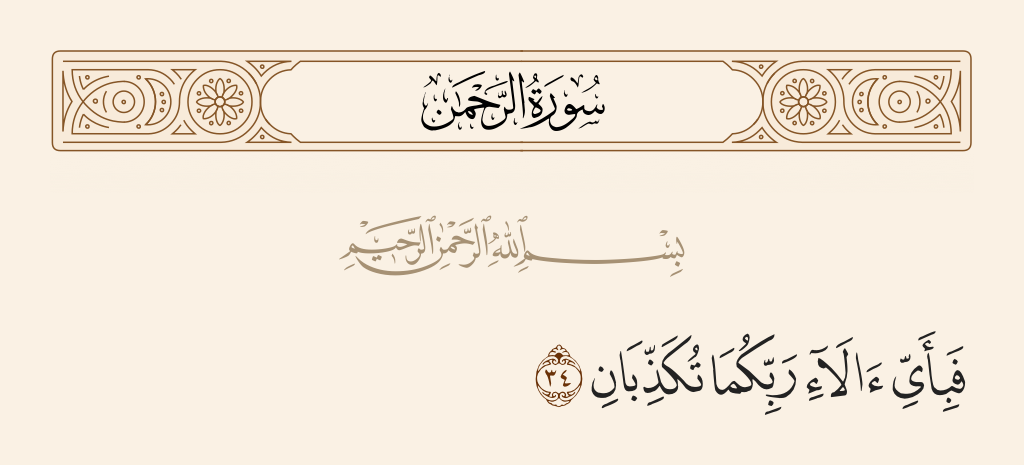 سُورَةُ الرَّحْمَٰن
بِسْمِ ٱللَّهِ ٱلرَّحْمَٰنِ ٱلرَّحِيمِ
فَبِأَيِّ ءَالَآءِ رَبِّكُمَا تُكَذِّبَانِ ٣٤